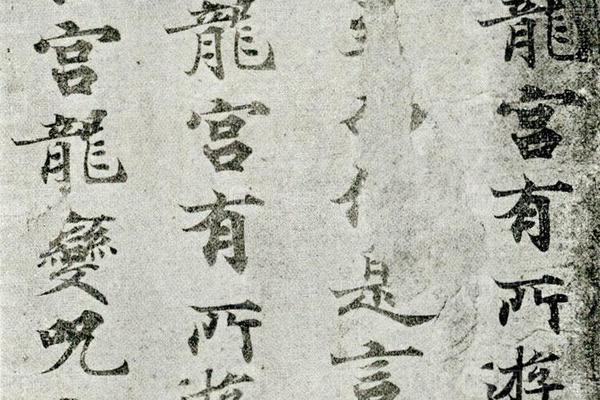 龍宮有所遊
是言
龍宮有所遊
宮龍變呪